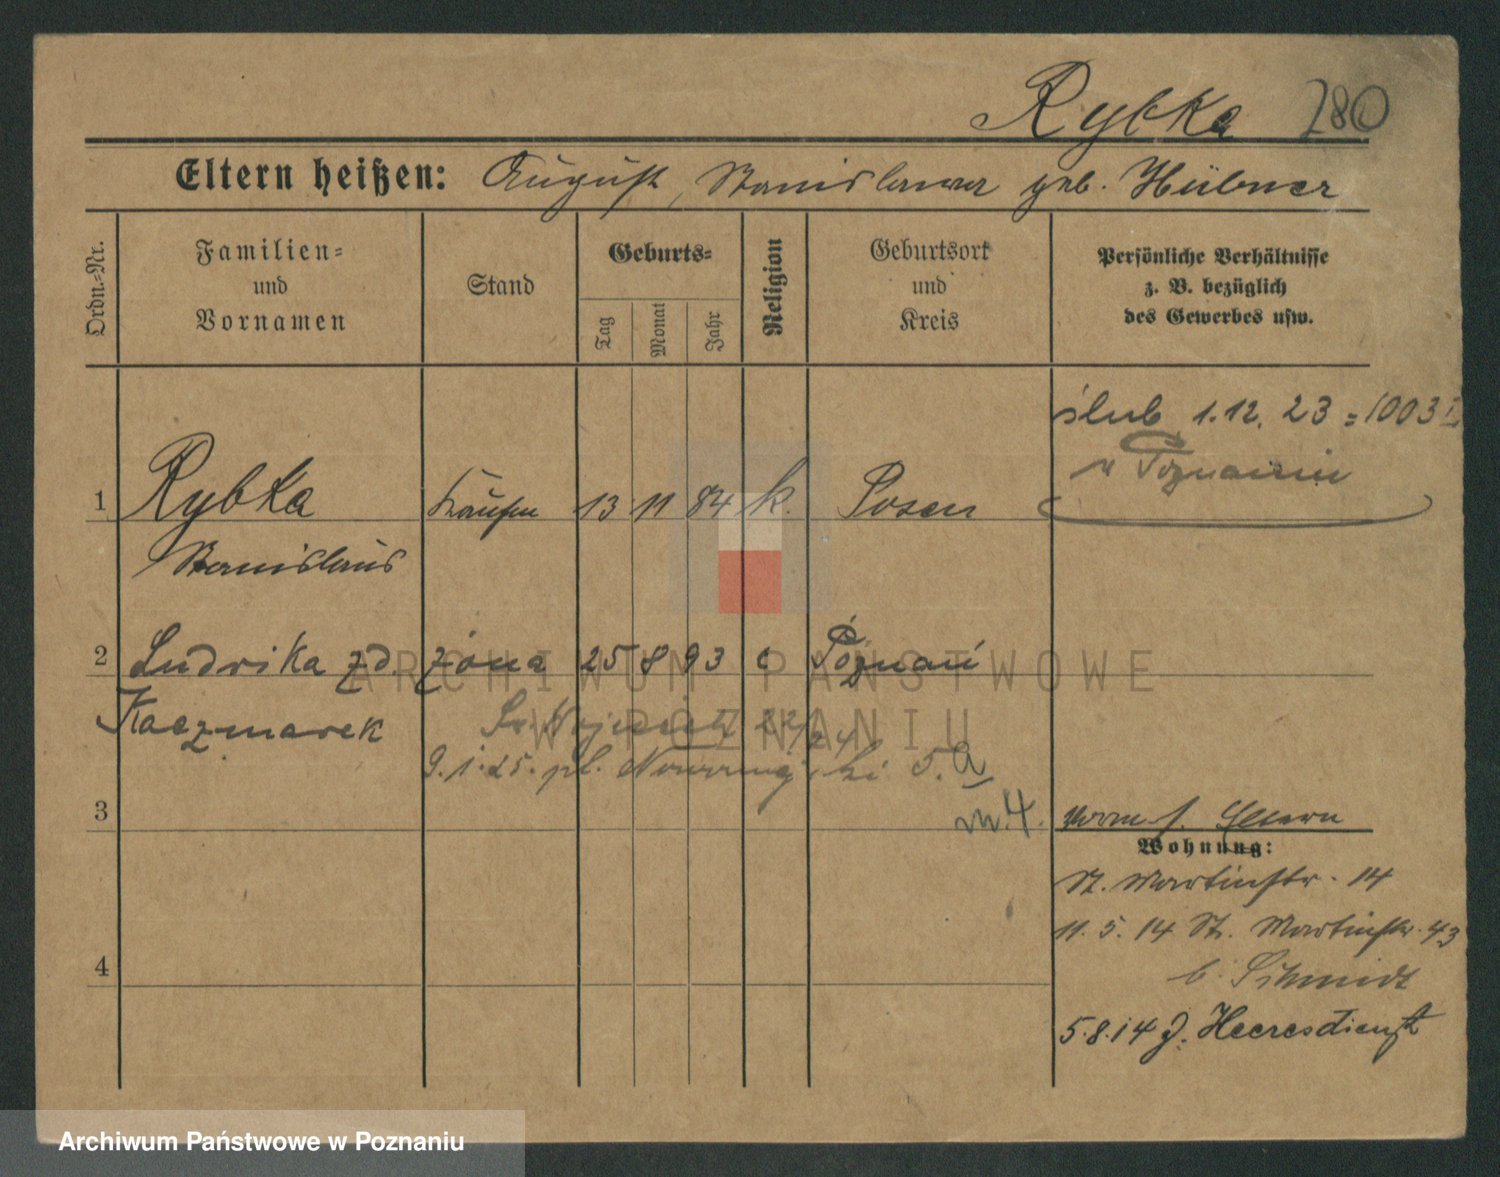 Rybka 280
Eltern heißen: August, Stanislawa geb. Hübner
Ordn.-Nr.
Familien- und Vornamen
Stand
Geburts-
Tag
Monat
Jahr
Religion
Geburtsort und Kreis
Persönliche Verhältnisse
z. B. bezüglich
des Gewerbes usw.
ślub 1.12.23 = 1003
w Poznaniu
1 Rybka 13 11 84 k. Posen
Stanislaus
2 Ludwika zd żona 25 8 93 c Poznań
Kaczmarek
9.1.25. pl. 5.a
m.4.
3
Eltern
Wohnung:
St. Martinstr. 14
11.5.14 St. Martinstr. 43
b. Schmidt
4
5.8.14 z. Heeresdienst
ARCHIWUM PAŃSTWOWE
W POZNANIU
Archiwum Państwowe w Poznaniu